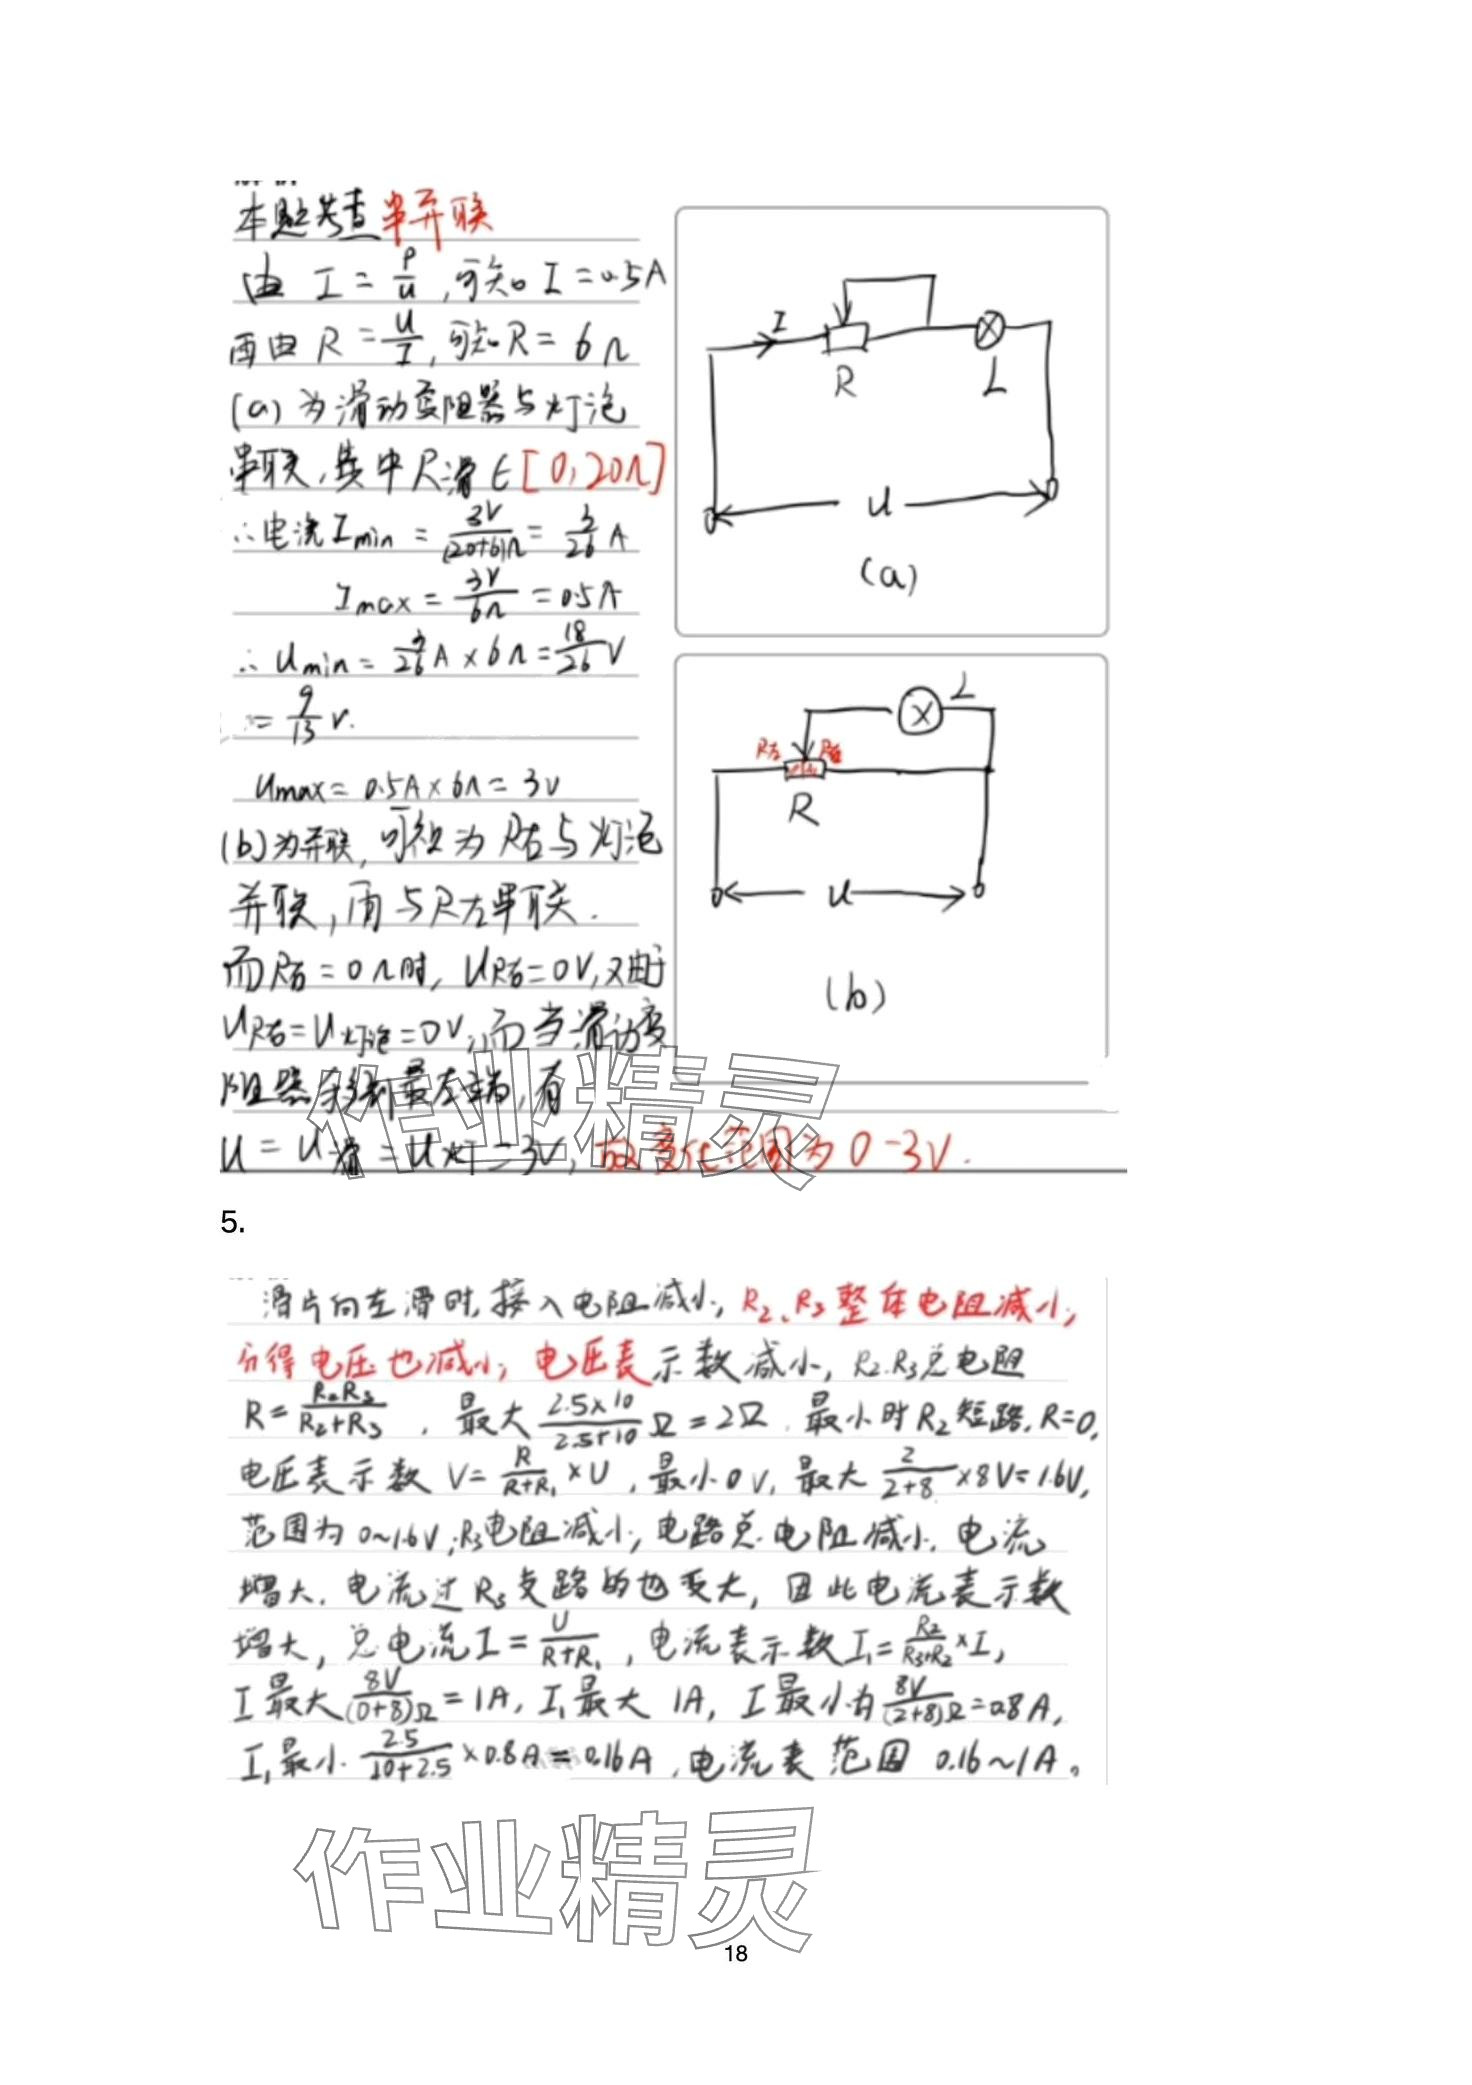 本题考查串并联
由 I = P/U ,可知 I = 0.5A
再由 R = U/I , 可知 R = 6Ω
(a) 为滑动变阻器与灯泡
串联, 其中 R滑 ∈ [0,20Ω]
∴电流 Imin = 3V/(20+6)Ω = 3/26 A
Imax = 3V/6Ω = 0.5A
∴ Umin = 3/26 A × 6Ω = 18/26 V
= 9/13 V.
Umax = 0.5A × 6Ω = 3V
(b)为并联, 可视为 R右与灯泡
并联, 而与R左串联.
而R右 = 0Ω时, UR右 = 0V, 又由于
UR右 = U灯泡 = 0V, 而当滑动变
阻器移到最左端, 有
U = U滑 = U灯 = 3V, 故变化范围为 0-3V.
I
R
L
U
(a)
L
R左 R右
R
U
(b)
5.
滑片向左滑时,接入电阻减小, R2、R3整体电阻减小,
分得电压也减小, 电压表示数减小, R2.R3总电阻
R = R2R3/(R2+R3) , 最大 (2.5×10)/(2.5+10) Ω = 2Ω. 最小时R2短路, R=0,
电压表示数 V = R/(R+R1) × U , 最小0V, 最大 2/(2+8) ×8V=1.6V,
范围为 0~1.6V; R3电阻减小, 电路总电阻减小. 电流
增大. 电流过R3支路的也变大, 因此电流表示数
增大, 总电流 I = U/(R+R1) , 电流表示数 I1 = R2/(R3+R2) × I,
I最大 8V/(0+8)Ω = 1A, I1最大 1A, I最小为 8V/(2+8)Ω = 0.8A,
I1最小 2.5/(10+2.5) × 0.8A = 0.16A , 电流表范围 0.16~1A。
作业精灵
作业精灵
18